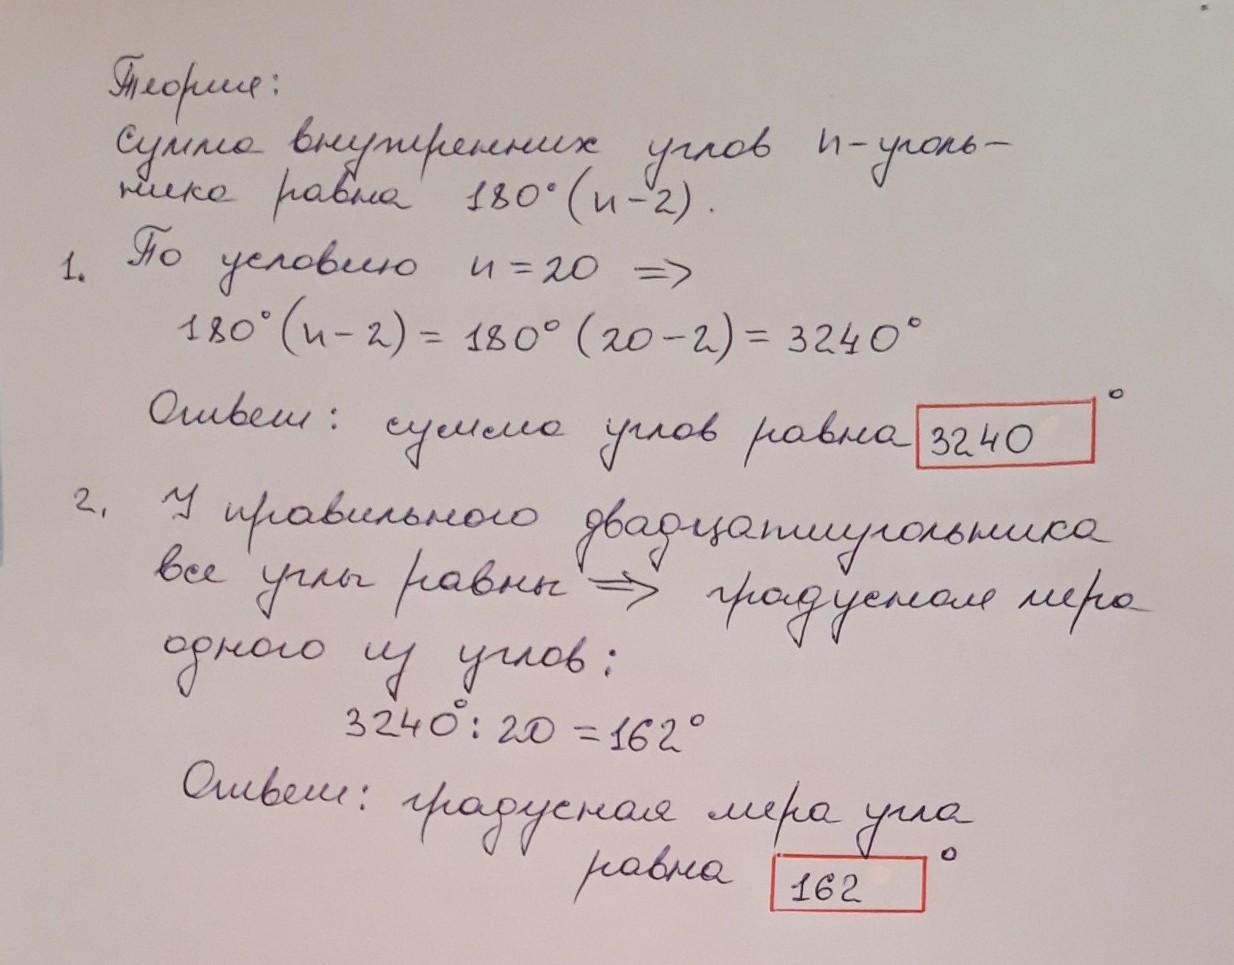 Теория:
Сумма внутренних углов n-уголь-
ника равна 180°(n-2).
1. По условию n=20 =>
180°(n-2)=180°(20-2)=3240°
Ответ: сумма углов равна 3240°
2. У правильного двадцатиугольника
все углы равны => градусная мера
одного из углов:
3240°:20=162°
Ответ: градусная мера угла
равна 162°